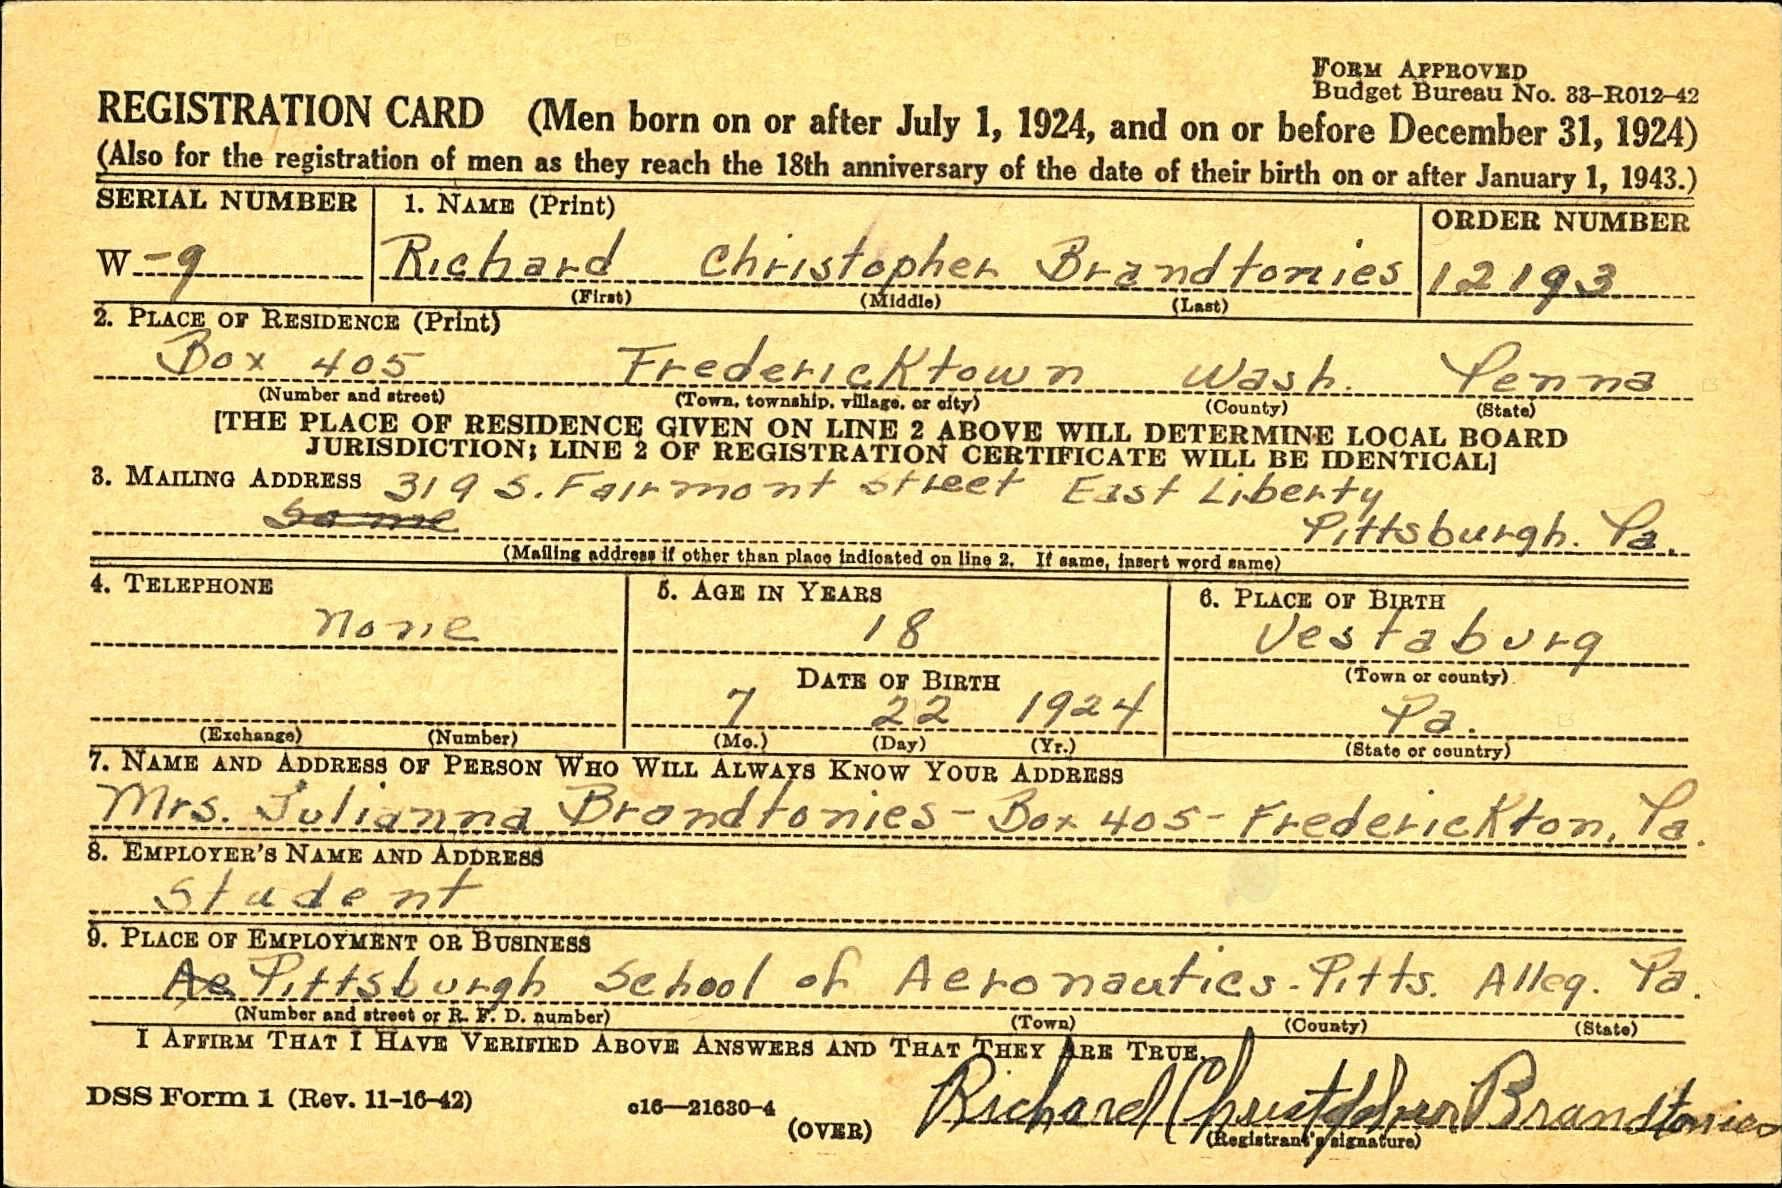 FORM APPROVED
Budget Bureau No. 33-R012-42
REGISTRATION CARD (Men born on or after July 1, 1924, and on or before December 31, 1924)
(Also for the registration of men as they reach the 18th anniversary of the date of their birth on or after January 1, 1943.)
SERIAL NUMBER 1. NAME (Print) ORDER NUMBER
W-9 Richard Christopher Brandtonies 12193
(First) (Middle) (Last)
2. PLACE OF RESIDENCE (Print)
Box 405 Fredericktown Wash. Penna
(Number and street) (Town, township, village, or city) (County) (State)
[THE PLACE OF RESIDENCE GIVEN ON LINE 2 ABOVE WILL DETERMINE LOCAL BOARD
JURISDICTION; LINE 2 OF REGISTRATION CERTIFICATE WILL BE IDENTICAL]
3. MAILING ADDRESS 319 S. Fairmont Street East Liberty
Same Pittsburgh. Pa.
(Mailing address if other than place indicated on line 2. If same, insert word same)
4. TELEPHONE 5. AGE IN YEARS 6. PLACE OF BIRTH
None 18 Vestaburg
DATE OF BIRTH (Town or county)
7 22 1924 Pa.
(Exchange) (Number) (Mo.) (Day) (Yr.) (State or country)
7. NAME AND ADDRESS OF PERSON WHO WILL ALWAYS KNOW YOUR ADDRESS
Mrs. Julianna Brandtonies - Box 405 - Frederickton, Pa.
8. EMPLOYER'S NAME AND ADDRESS
Student
9. PLACE OF EMPLOYMENT OR BUSINESS
Ae Pittsburgh School of Aeronautics - Pitts. Alleg. Pa.
(Number and street or R. F. D. number) (Town) (County) (State)
I AFFIRM THAT I HAVE VERIFIED ABOVE ANSWERS AND THAT THEY ARE TRUE.
DSS Form 1 (Rev. 11-16-42) c16—21630-4 (OVER) Richard Christopher Brandtonies
(Registrant's signature)